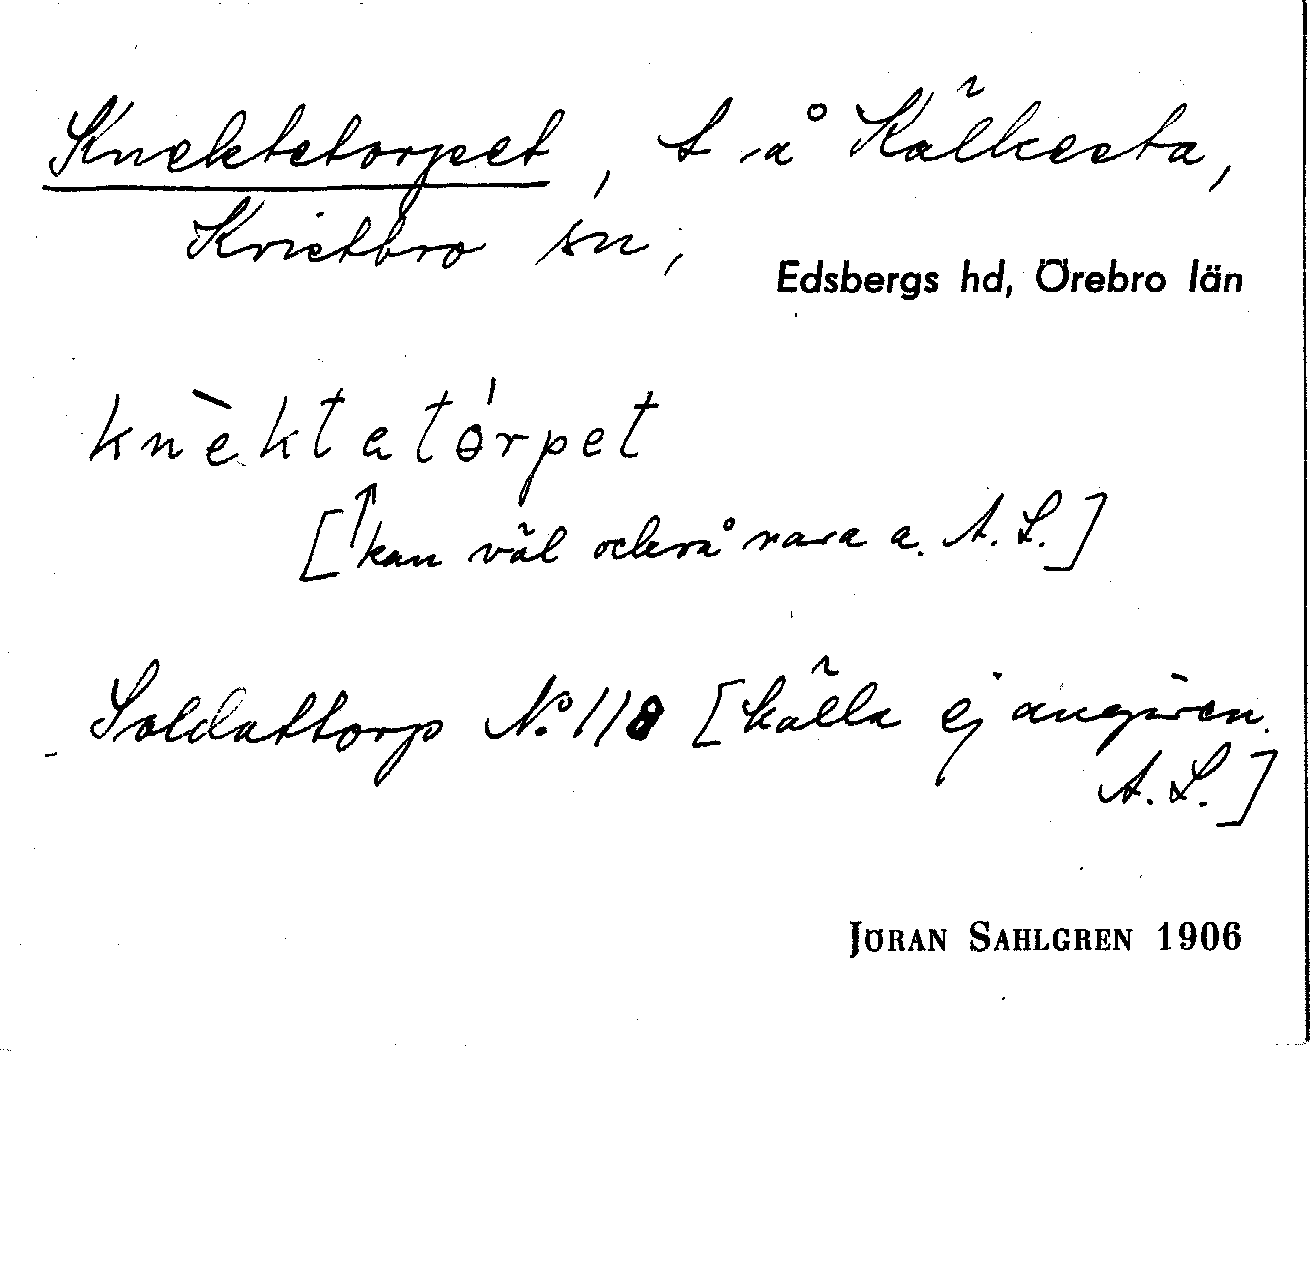 Knektetorpet, t. å Kälkesta,
Kvistbro sn,
Edsbergs hd, Örebro län
knèktatórpet
[↑kan väl också vara a. A. L.]
Soldattorp No 118 [källa ej angiven.
A. L.]
JÖRAN SAHLGREN 1906